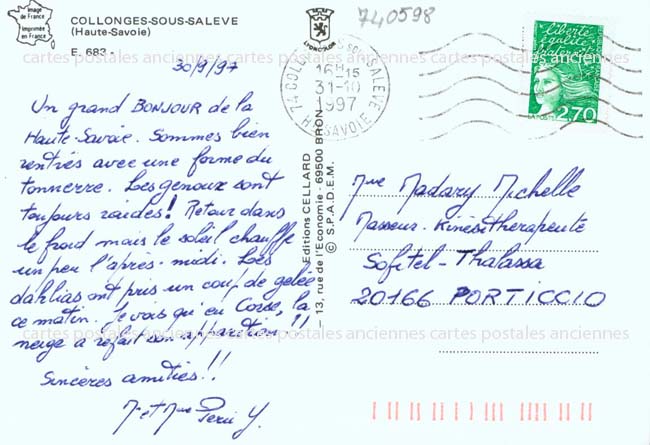 Image de France
Imprimée en France
COLLONGES-SOUS-SALEVE
(Haute-Savoie)
E. 683 -
LYONCOLOR
740598
30/9/97
74 COLL SOUS SALEVE
16H 15
31-10
1997
HTE SAVOIE
liberté
égalité
fraternité
LA POSTE
2,70
cartes postales anciennes cartes postales anciennes cartes postales anciennes
Un grand BONJOUR de la
Haute-Savoie. Sommes bien
rentrés avec une forme du
tonnerre. Les genoux sont
toujours raides! Retour dans
le froid mais le soleil chauffe
un peu l'après-midi. Les
dahlias ont pris un coup de gelée
ce matin. Je vois qu'en Corse, la
neige a refait son apparition!!
Sincères amitiés!!
Mr et Mme Perri Y.
Editions CELLARD
– 13, rue de l'Economie - 69500 BRON –
© S.P.A.D.E.M.
Mme Madary Michelle
Masseur-Kinésithérapeute
Sofitel-Thalassa
20166 PORTICCIO
cartes postales anciennes cartes postales anciennes cartes postales anciennes